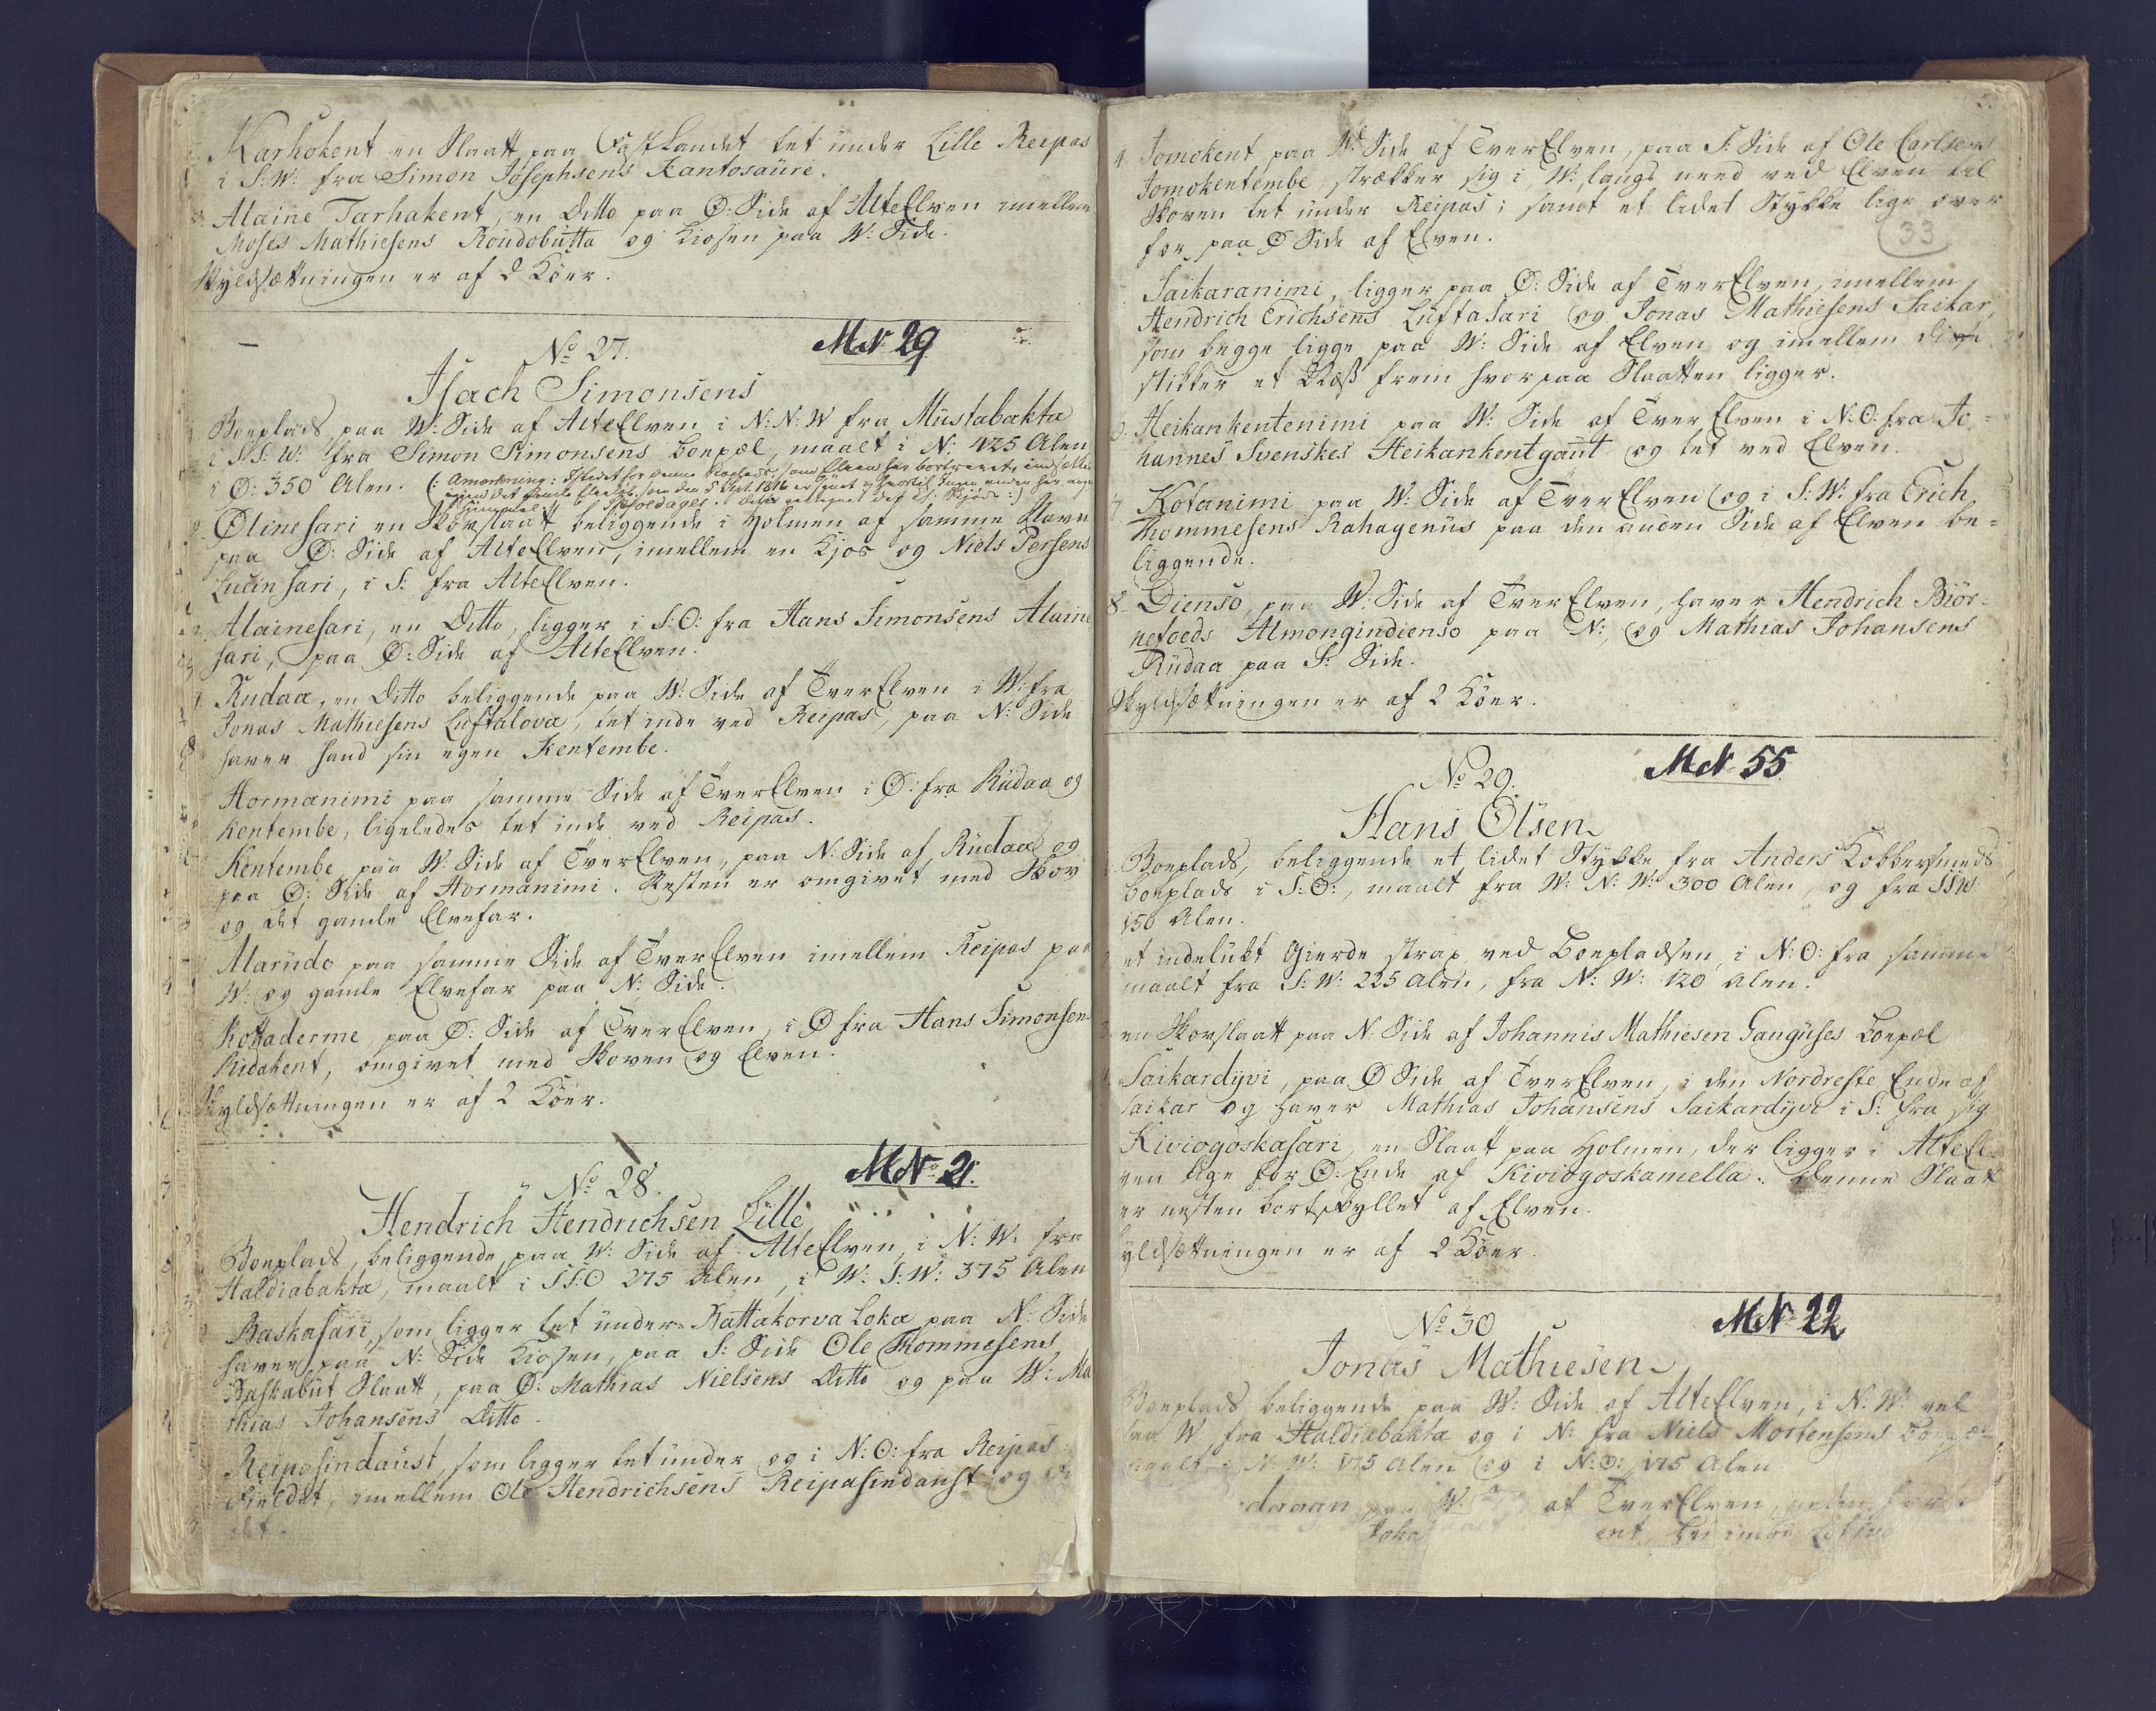 Karhokent en Slaatt paa Fastlandet tet under Lille Reipas
i S: W: fra Simon Josephsens Kantosaüri.
Alaine Tarhakent, en Ditto paa Ø: Side af AlteElven imellem
Moses Mathiesens Roudobütta og Kiosen paa W: Side.
Skyldsættningen er af 2 Köer.
No 27.
MN 29
Isach Simonsens
Boeplads, paa W: Side af AlteElven i N: N: W fra Müstabakta
i S: S: W: fra Simon Simonsens boepæl, maalt i N: 425 Alen
i Ø: 350 Alen. (: Anmærkning: Istedet for denne Boeplads, som Elven har bortrevet,
som den 5 Sept. 1816
Ølinesari en Skovslaatt beliggende i Holmen af samme Navn
paa Ø: Side af AlteElven, imellem en Kjos og Niels Persens
Luünsari, i S: fra AlteElven.
Alainesari, en Ditto, ligger i S: O: fra Hans Simonsens Alaine
sari, paa Ø: Side af AlteElven.
Rudaa, en Ditto beliggende paa W: Side af TverElven i W: fra
Jonas Mathiesens Luftalova, tet inde ved Reipas, paa N: Side
haver hand sin egen Kentembe.
Hormanimi paa samme Side af TverElven i Ø: fra Rüdaa og
Kentembe, ligeledes tet inde ved Reipas.
Kentembe paa W: Side af TverElven, paa N: Side af Rüdaa og
paa Ø: Side af Hormanimi. Resten er omgivet med Skov
og det gamle Elvefar.
Alarüdo paa samme Side af TverElven imellem Reipas paa
W: og gamle Elvefar paa N: Side.
Kottaderme, paa Ø: Side af TverElven, i Ø fra Hans Simonsens
Ridakent, omgivet med Skoven og Elven.
Skyldsættningen er af 2 Köer.
No 28.
MNo 21.
Hendrich Hendrichsen Lille
Boeplads, beliggende paa W: Side af AlteElven, i N: W: fra
Haldiabakta, maalt i S S: O 275 Alen, i W: S: W: 375 Alen
Baskasari, som ligger tet ünder Rattakorva Loka paa N: Side
haver paa N: Side Kiosen, paa S: Side Ole Thommesens
Baskabüt Slaatt, paa Ø: Mathias Nielsens Ditto og paa W: Ma
thias Johansens Ditto.
Reipasindaust, som ligger tet ünder og i N: O: fra Reipas
Fieldet, imellem Ole Hendrichsens Reipasindanst og
33
4. Jomokent paa W: Side af TverElven, paa S: Side af Ole Carlsens
Jomokentembe, strækker sig i W: langs need ved Elven til
Skoven tet ünder Reipas; samt et lidet Stykke lige over
for paa Ø Side af Elven.
Saikaranimi, ligger paa Ø: Side af TverElven, imellem
Hendrich Erichsens Lüftasari og Jonas Mathiesens Saikar,
som begge ligge paa W: Side af Elven og imellem disse
stikker et Næs frem hvorpaa Slaatten ligger.
6. Heikankentenimi paa W: Side af TverElven i N: O: fra Jo=
hannes Svenskes Heikankentgaüt og tet ved Elven.
7 Kotanimi paa W: Side af TverElven og i S: W: fra Erich
Thommesens Rahagenüs paa den anden Side af Elven be=
liggende.
8. Dienso, paa W: Side af TverElven, haver Hendrich Biör=
nefoeds Almongindienso paa N: og Mathias Johansens
Rüdaa paa S: Side.
Skyldsættningen er af 2 Köer.
No 29.
MN 55
Hans Olsen
Boeplads, beliggende et lidet Stykke fra Anders Kobbersmeds
boeplads i S: O:, maalt fra W: N: W: 300 Alen, og fra SSW:
150 Alen.
et indelükt Gierde strax ved Boepladsen, i N: O: fra samme
maalt fra S: W: 225 Alen, fra N: W: 120 Alen.
en Skovslaatt paa N Side af Johannis Mathiesen Gangüses boepæl
Saikardyvi, paa Ø Side af TverElven, i den Nordreste Ende af
Saikar og haver Mathias Johansens Saikardyvi i S: fra sig
Kiviogoskasari, en Slaatt paa Holmen, der ligger i AlteEl=
ven lige for Ø: Ende af Kiviogoskamella. Denne Slaat
er nesten bortskyllet af Elven.
yldsættningen er af 2 Köer.
No 30
MN 22
Jonas Mathiesen
Boeplads beliggende paa W: Side af AlteElven, i N: W: vel
saa W fra Haldiabakta og i N: fra Niels Mortensens boepæl
maalt i N: W: 175 Alen og i N: O: 175 Alen
daaan W. af TverElven,
Joha